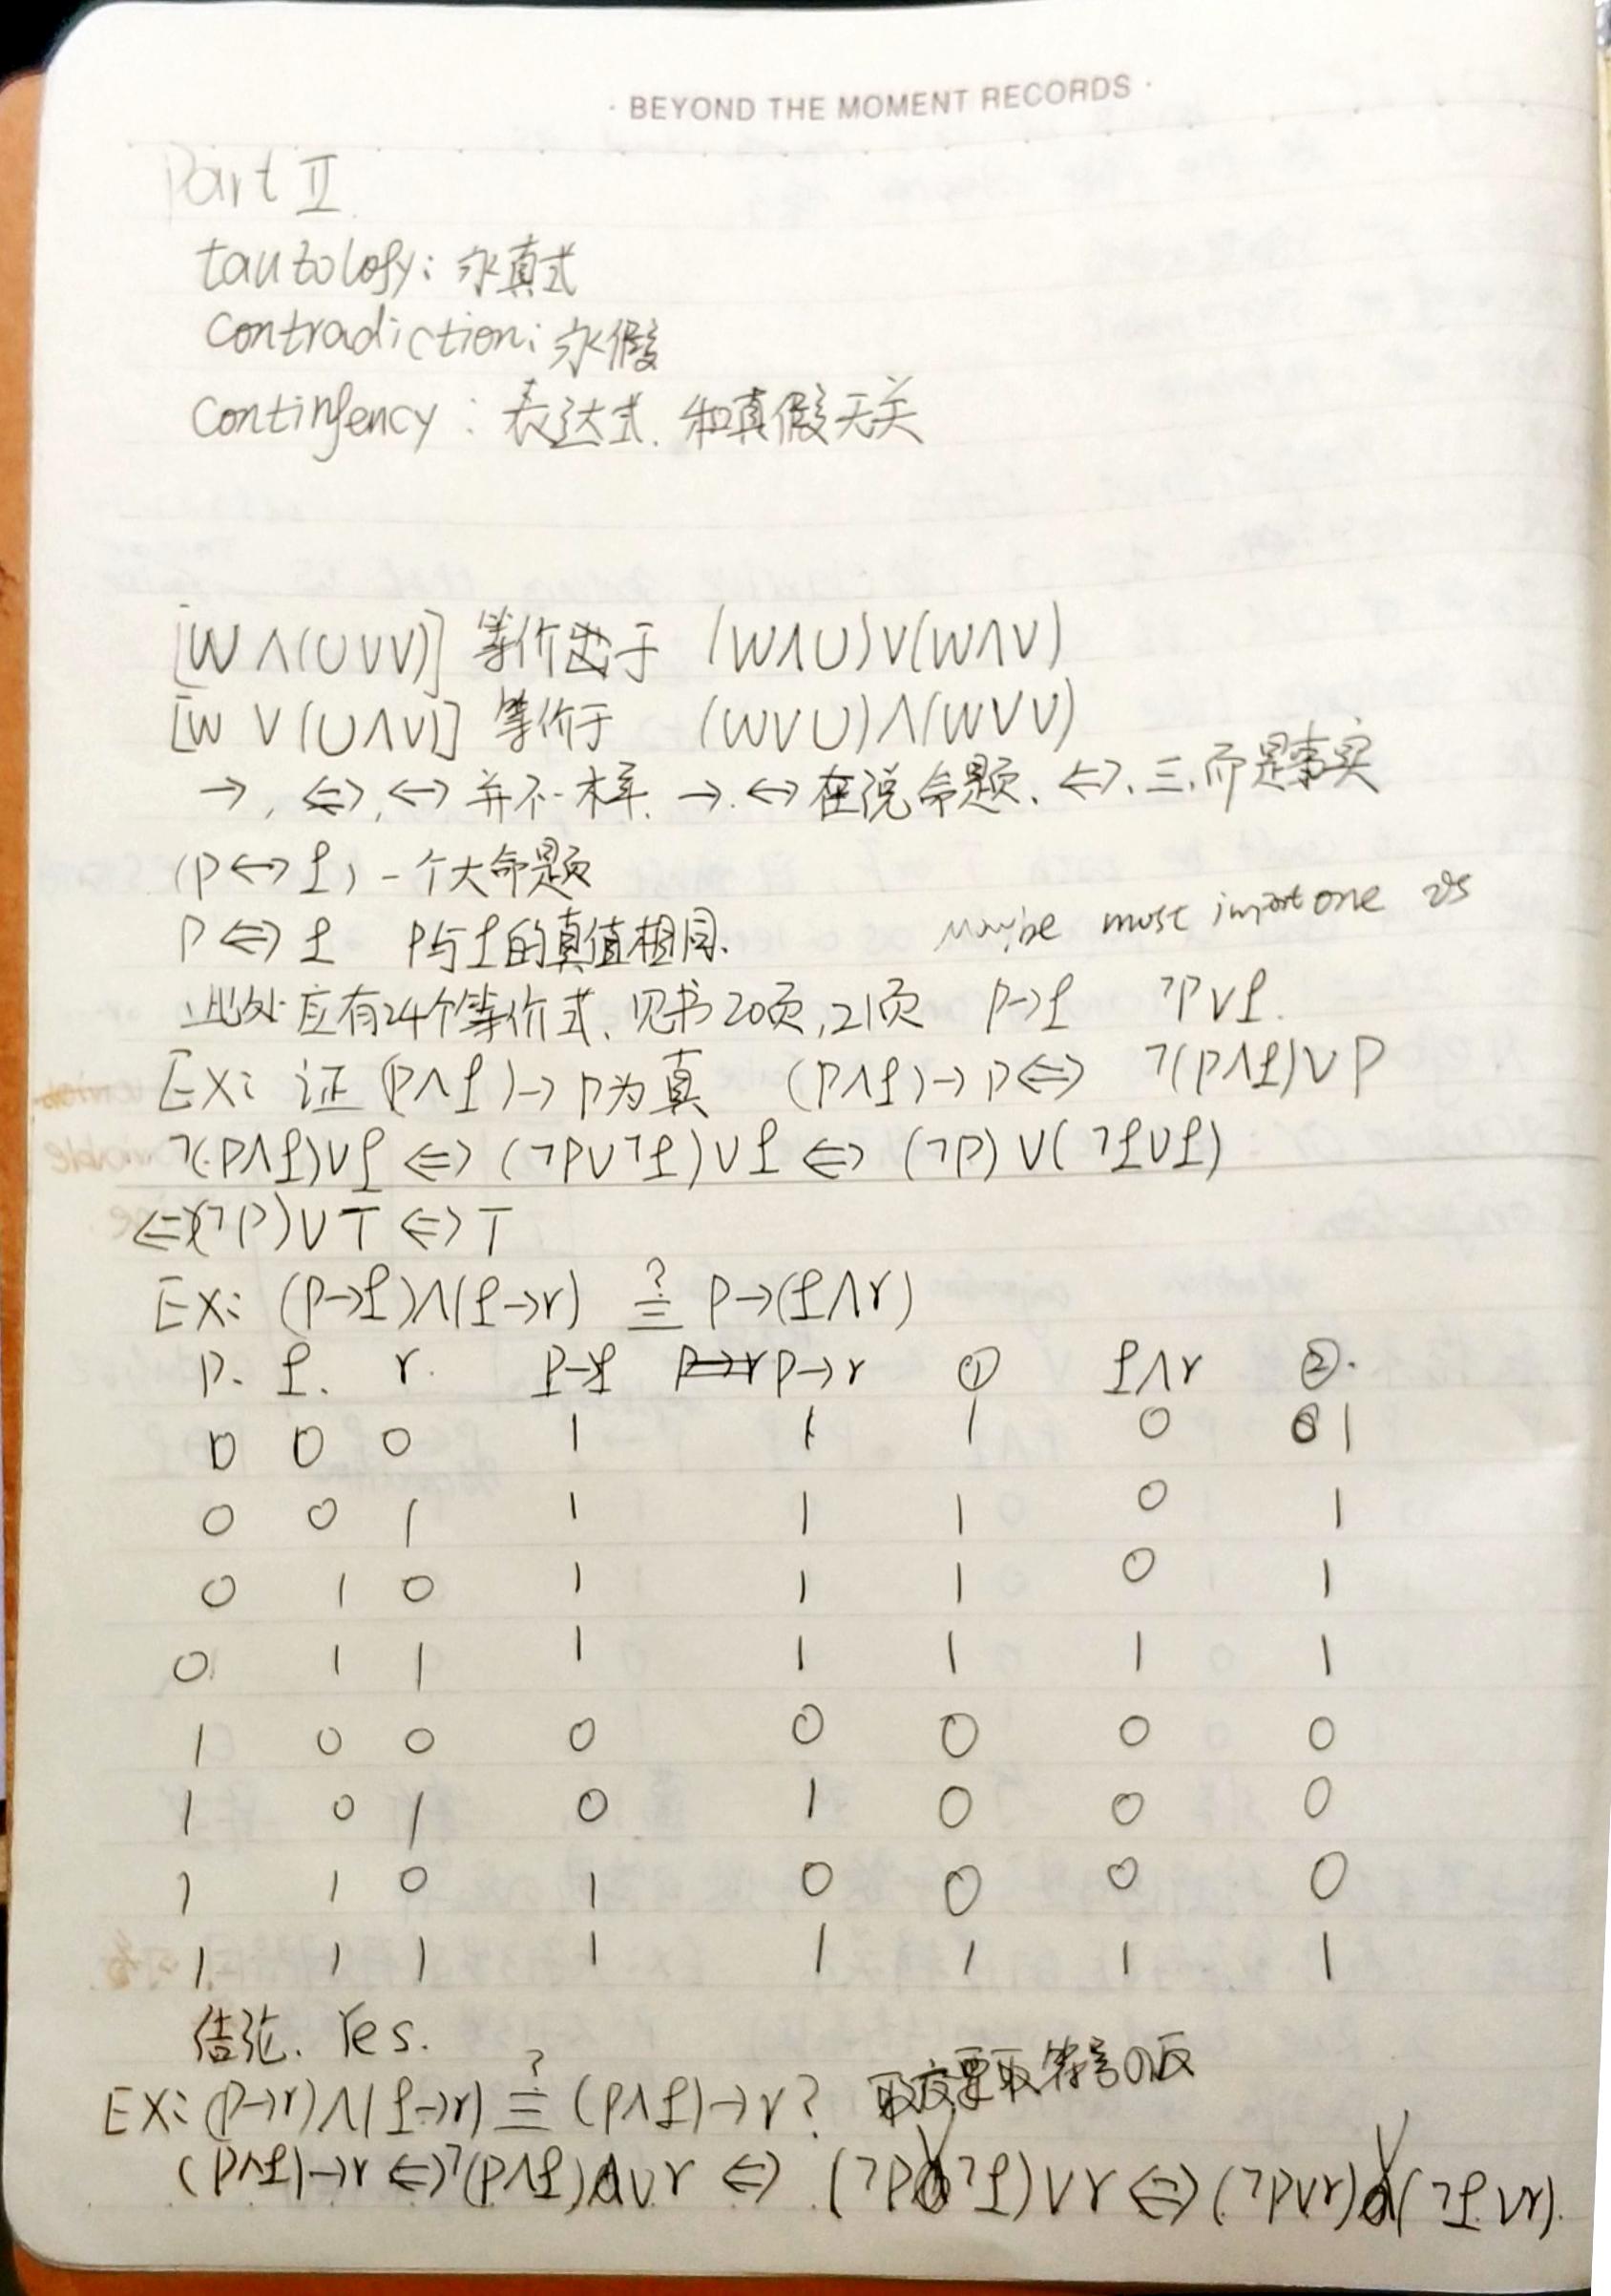 · BEYOND THE MOMENT RECORDS ·
Part Ⅱ
tautology: 永真式
contradiction: 永假
contingency: 表达式. 和真假无关
[W∧(U∨V)] 等价于 (W∧U)∨(W∧V)
[W∨(U∧V)] 等价于 (W∨U)∧(W∨V)
→, ⇔, ↔ 并不一样. →. ↔ 在说命题. ⇔. ≡. 而是事实
(P↔q) 一个大命题
P⇔q P与q的真值相同.
maybe most import one is
此处应有24个等价式. 见书20页,21页 P→q ¬P∨q.
EX: 证 (P∧q)→P为真 (P∧q)→P⇔ ¬(P∧q)∨P
¬(P∧q)∨q ⇔ (¬P∨¬q)∨q ⇔ (¬P)∨(¬q∨q)
⇔(¬P)∨T ⇔ T
EX: (P→q)∧(q→r) ≟ P→(q∧r)
P. q. r. P→q P→r P→r ① q∧r ②.
0 0 0 1 1 1 0 1
0 0 1 1 1 1 0 1
0 1 0 1 1 1 0 1
0 1 1 1 1 1 1 1
1 0 0 0 0 0 0 0
1 0 1 0 1 0 0 0
1 1 0 1 0 0 0 0
1 1 1 1 1 1 1 1
结论. Yes.
EX: (P→r)∧(q→r) ≟ (P∧q)→r? 取反要取符号的反
(P∧q)→r ⇔ ¬(P∧q)∨r ⇔ (¬P∨¬q)∨r ⇔ (¬P∨r)∨(¬q∨r).